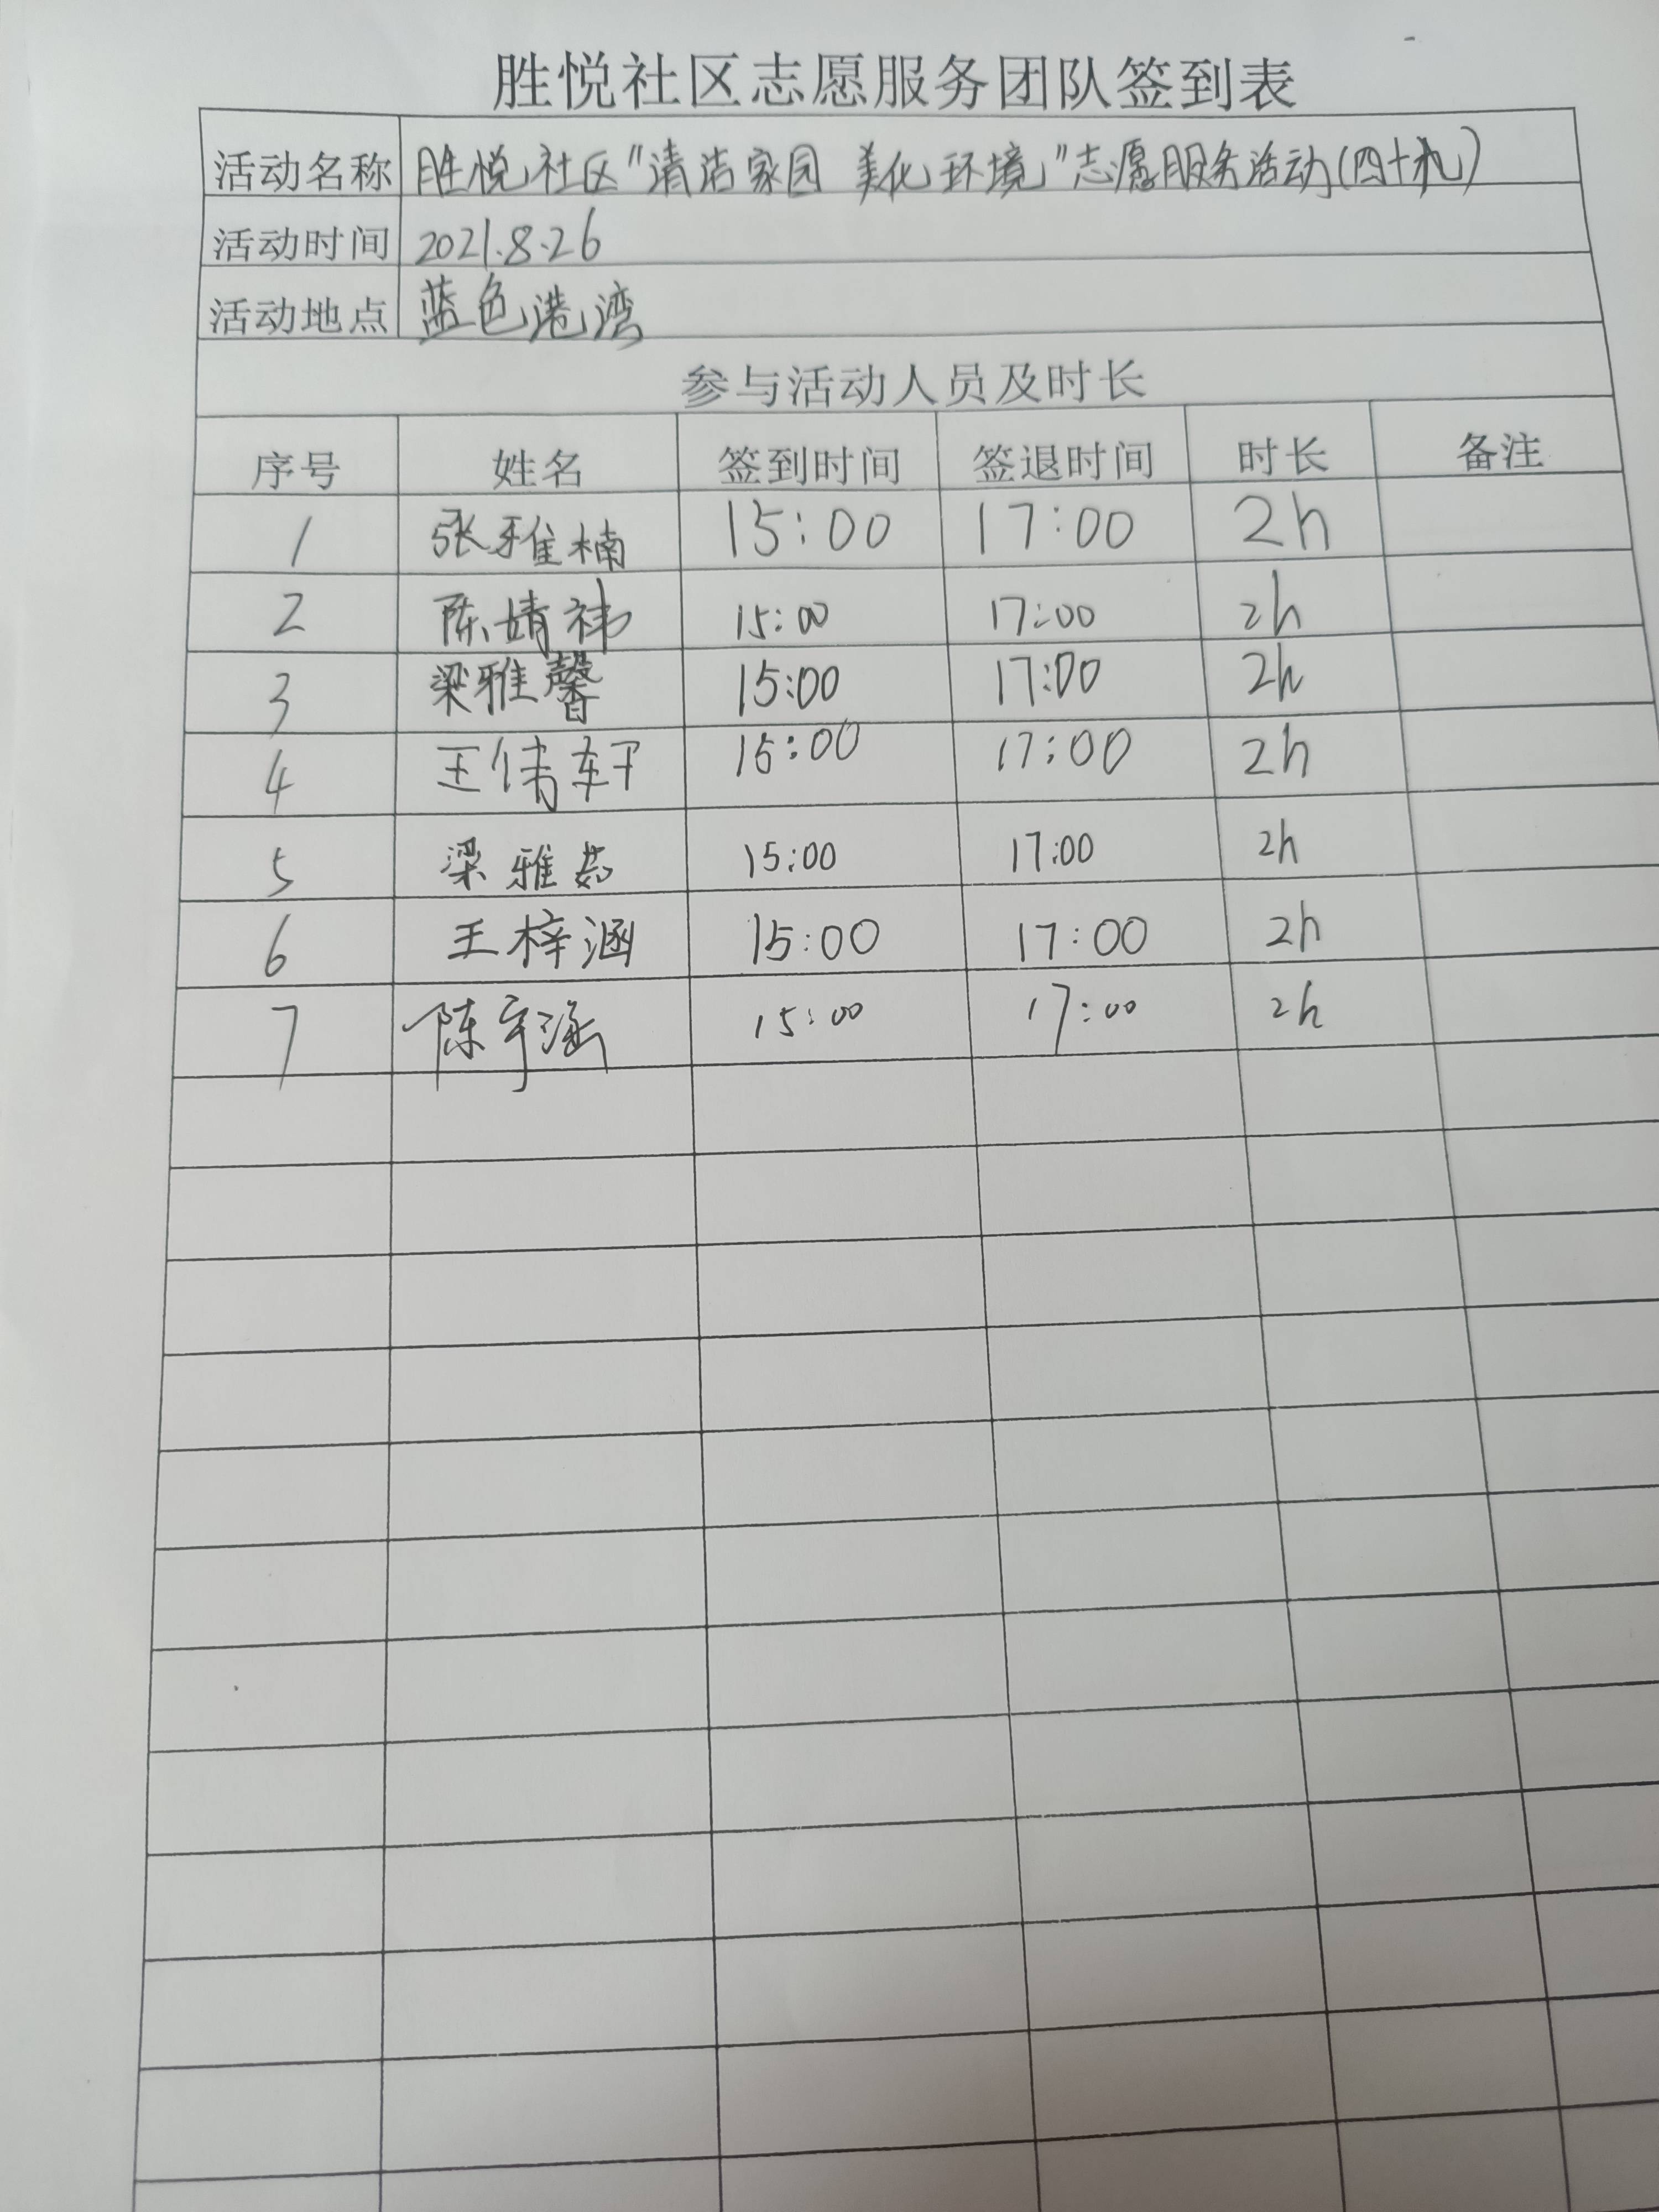 胜悦社区志愿服务团队签到表
活动名称 胜悦社区"清洁家园 美化环境"志愿服务活动(四十九)
活动时间 2021.8.26
活动地点 蓝色港湾
参与活动人员及时长
序号 姓名 签到时间 签退时间 时长 备注
1 张雅楠 15:00 17:00 2h
2 陈婧祎 15:00 17:00 2h
3 梁雅馨 15:00 17:00 2h
4 王倩轩 15:00 17:00 2h
5 梁雅茹 15:00 17:00 2h
6 王梓涵 15:00 17:00 2h
7 陈宇涵 15:00 17:00 2h